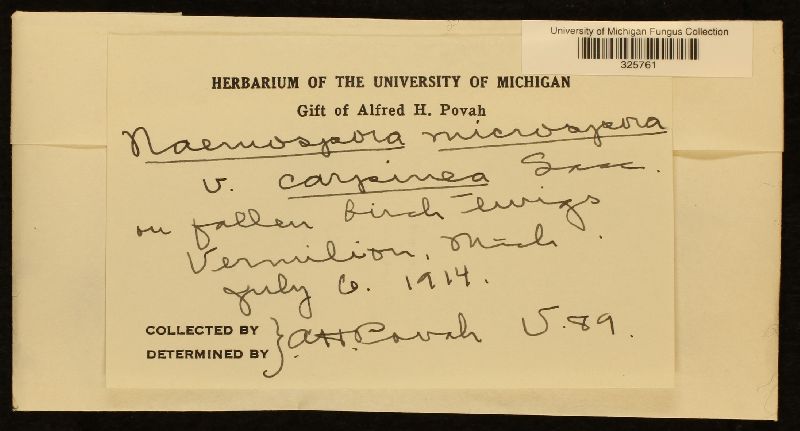 University of Michigan Fungus Collection
325761
HERBARIUM OF THE UNIVERSITY OF MICHIGAN
Gift of Alfred H. Povah
Naemospora microspora
v. carpinea Sacc.
on fallen birch twigs
Vermilion, Mich.
July 6. 1914.
COLLECTED BY
DETERMINED BY } A.H.Povah V.89.